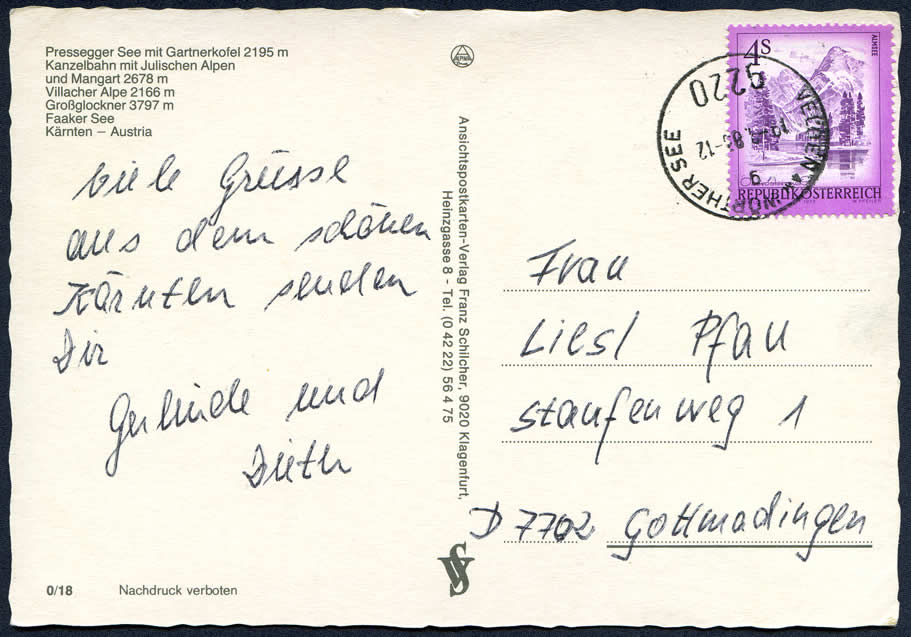 Pressegger See mit Gartnerkofel 2195 m
Kanzelbahn mit Julischen Alpen
und Mangart 2678 m
Villacher Alpe 2166 m
Großglockner 3797 m
Faaker See
Kärnten – Austria
Viele Grüsse
aus dem schönen
Kärnten senden
Dir
Gerlinde und
Dieth
0/18
Nachdruck verboten
Ansichtspostkarten-Verlag Franz Schilcher, 9020 Klagenfurt,
Heinzgasse 8 - Tel. (0 42 22) 56 4 75
4S
ALMSEE
REPUBLIK ÖSTERREICH
9220
VELDEN
WÖRTHER SEE
Frau
Liesl Pfau
Staufenweg 1
D 7702 Gottmadingen